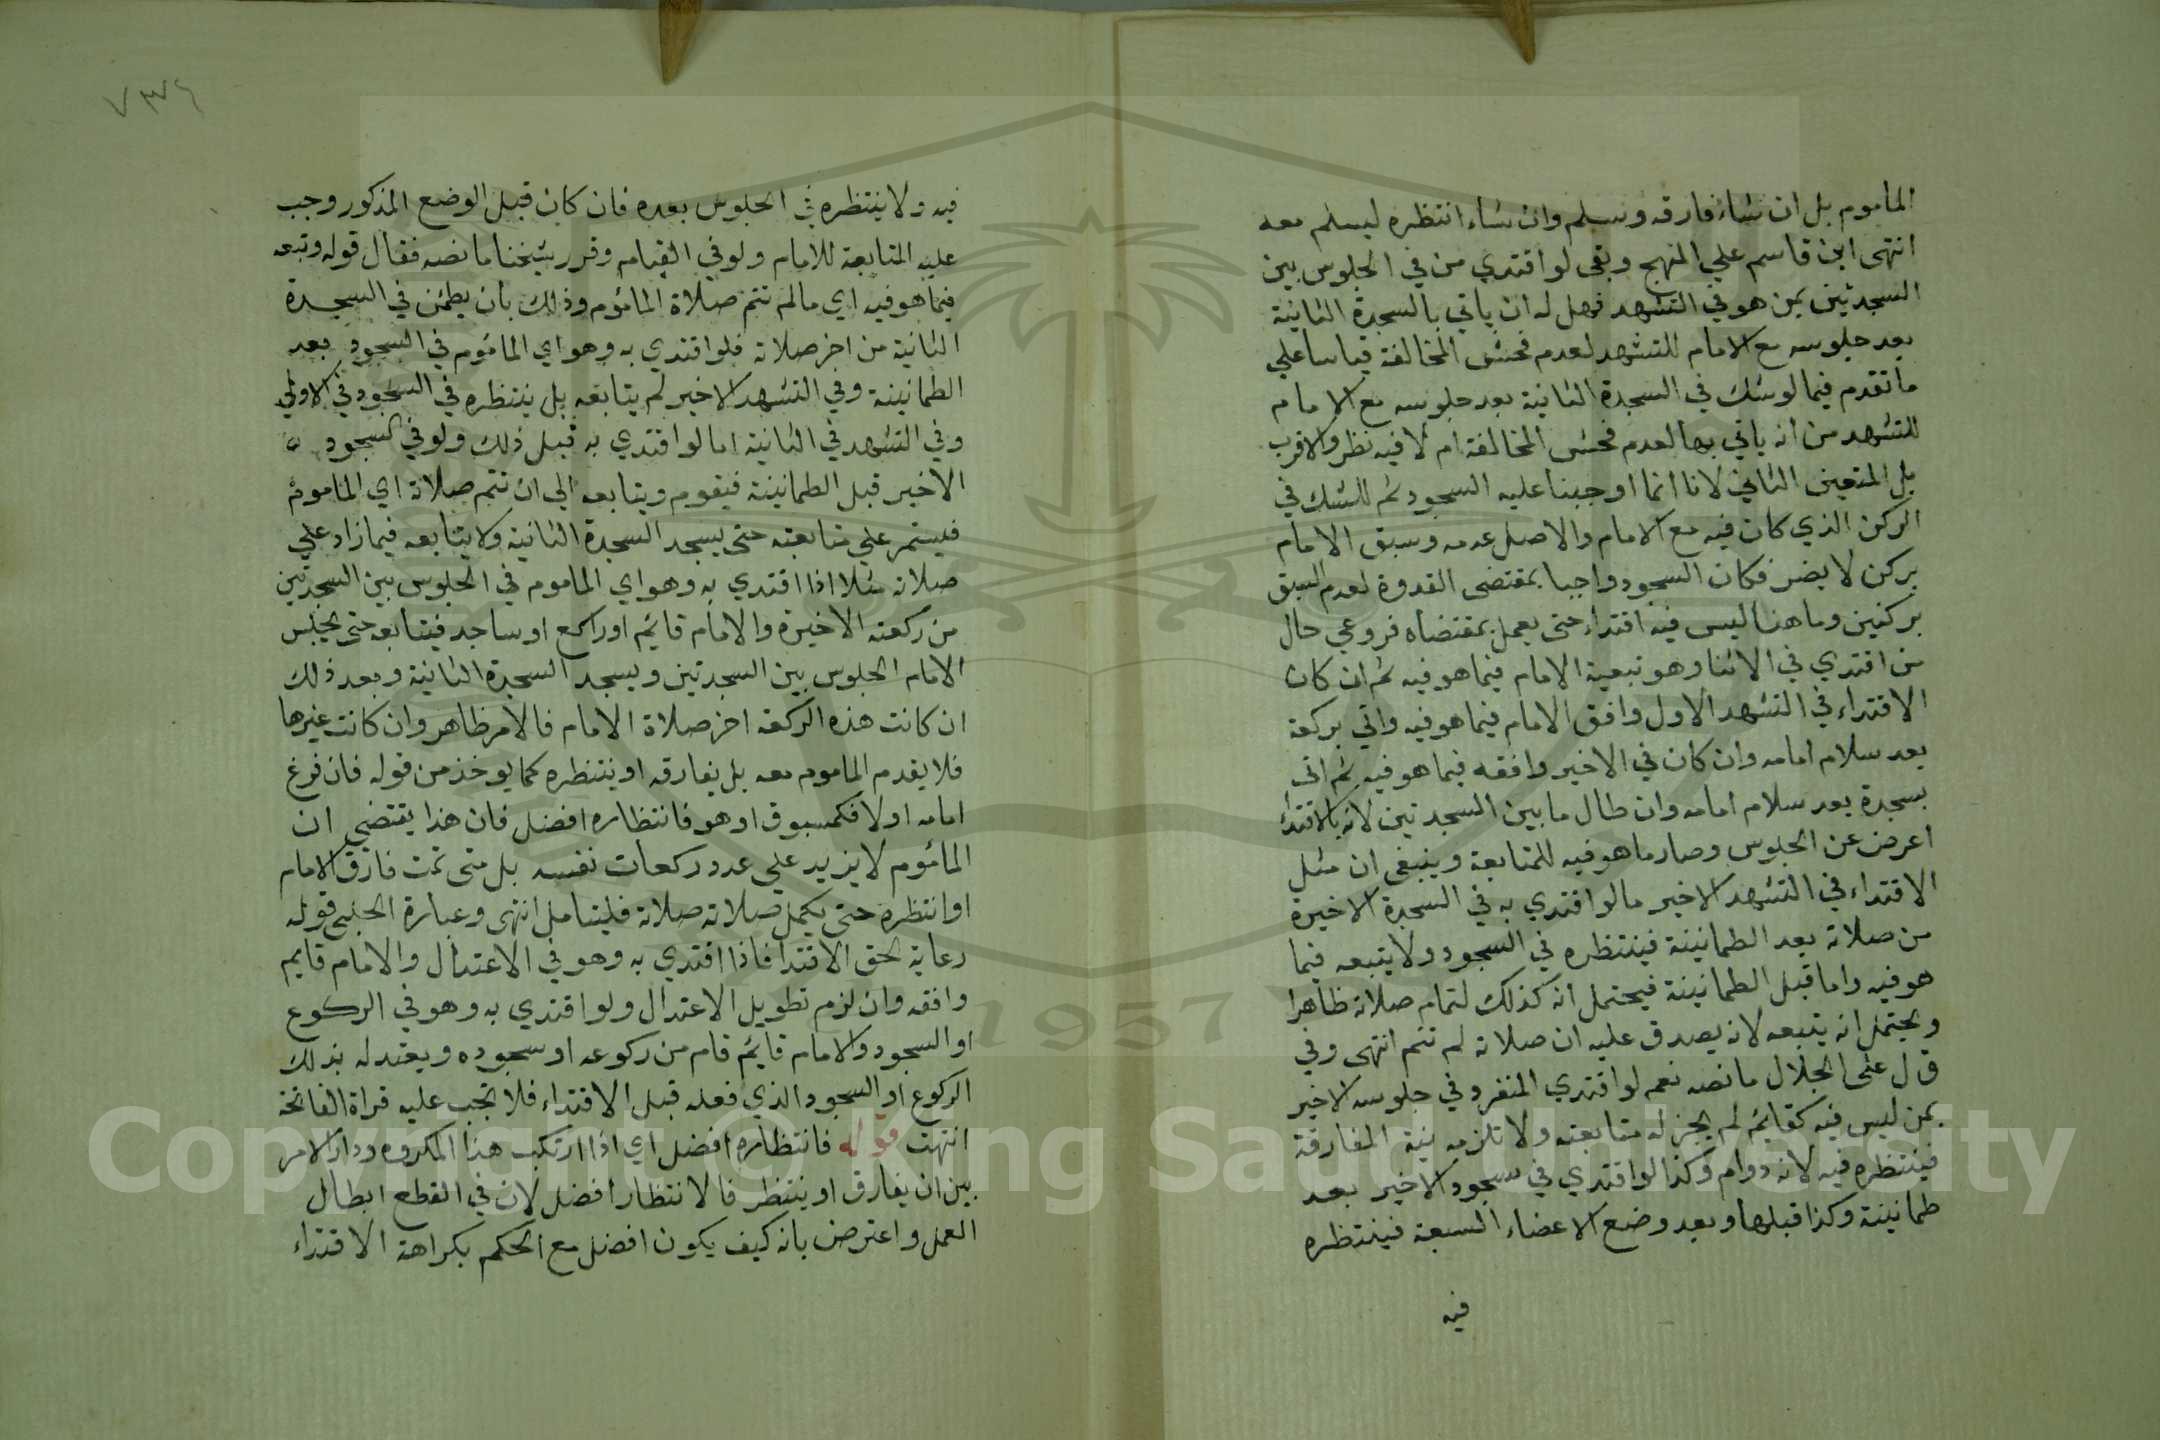 الماموم بل ان شاء فارقه وسلم وان شاء انتظره ليسلم معه
انتهى ابن قاسم علي المنهج وبقى لو اقتدي من في الجلوس بين
السجدتين بمن هو في التشهد فهل له ان ياتي بالسجدة الثانية
بعد جلوسه مع الامام للتشهد لعدم فحش المخالفة قياسا علي
ما تقدم فيما لو شك في السجدة الثانية بعد جلوسه مع الامام
للتشهد من انه ياتي بها لعدم فحش المخالفة ام لا فيه نظر والاقرب
بل المتعين الثاني لانا انما اوجبنا عليه السجود ثم للشك في
الركن الذي كان فيه مع الامام والاصل عدمه وسبق الامام
بركن لا يضر فكان السجود واجبا بمقتضى القدوة لعدم السبق
بركنين وما هنا ليس فيه اقتداء حتى يعمل بمقتضاه فروعي حال
من اقتدي في الاثنا وهو تبعية الامام فيما هو فيه ثم ان كان
الاقتداء في التشهد الاول وافق الامام فيما هو فيه واتي بركعة
بعد سلام امامه وان كان في الاخير وافقه فيما هو فيه ثم اتى
بسجدة بعد سلام امامه وان طال ما بين السجدتين لانه بالاقتداء
اعرض عن الجلوس وصار ما هو فيه للمتابعة وينبغى ان مثل
الاقتداء في التشهد الاخير ما لو اقتدي به في السجدة الاخيرة
من صلاته بعد الطمانينة فينتظره في السجود ولا يتبعه فيما
هو فيه واما قبل الطمانينة فيحتمل انه كذلك لتمام صلاته ظاهرا
ويحتمل انه يتبعه لانه يصدق عليه ان صلاته لم تتم انتهى وفي
ق ل على الجلال ما نصه نعم لو اقتدي المنفرد في جلوسه الاخير
بمن ليس فيه كقائم لم يجز له متابعته ولا تلزمه نية المفارقة
فينتظره فيه لانه دوام وكذا لو اقتدي في سجود الاخير بعد
طمانينة وكذا قبلها وبعد وضع الاعضاء السبعة فينتظره
فيه
٧٣٤
فيه ولا ينتظره في الجلوس بعده فان كان قبل الوضع المذكور وجب
عليه المتابعة للامام ولو في القيام وقرر شيخنا ما نصه فقال قوله وتبعه
فيما هو فيه اي ما لم تتم صلاة المائوم وذلك بان يطمئن في السجدة
الثانية من اخر صلاته فلو اقتدي به وهو اي المائوم في السجود بعد
الطمانينة وفي التشهد الاخير لم يتابعه بل ينتظره في السجود في الاولي
وفي التشهد في الثانية اما لو اقتدي به قبل ذلك ولو في السجود ه
الاخير قبل الطمانينة فيقوم ويتابعه الي ان تتم صلاته اي الماموم
فيستمر علي متابعته حتى يسجد السجدة الثانية ولا يتابعه فيما زاد علي
صلاته مثلا اذا اقتدي به وهو اي الماموم في الجلوس بين السجدتين
من ركعته الاخيرة والامام قائم او راكع او ساجد فيتابعه حتى يجلس
الامام الجلوس بين السجدتين ويسجد السجدة الثانية وبعد ذلك
ان كانت هذه الركعة اخر صلاة الامام فالامر ظاهر وان كانت غيرها
فلا يقدم الماموم معه بل يفارقه او ينتظره كما يوخذ من قوله فان فرغ
امامه اولا فكمسبوق او هو فانتظاره افضل فان هذا يقتضي ان
المائوم لا يزيد علي عدد ركعات نفسه بل متى تمت فارق الامام
او انتظره حتى يكمل صلاته صلاته فليتامل انتهى وعبارة الحلبي قوله
رعاية لحق الاقتدا فاذا اقتدي به وهو في الاعتدال والامام قايم
وافقه وان لزم تطويل الاعتدال ولو اقتدي به وهو في الركوع
او السجود والامام قائم قام من ركوعه او سجوده ويعتد له بذلك
الركوع او السجود الذي فعله قبل الاقتداء فلا تجب عليه قراة الفاتحة
انتهت قوله فانتظاره افضل اي اذا ارتكب هذا المكروه ودار الامر
بين ان يفارق او ينتظر فالانتظار افضل لان في القطع ابطال
العمل واعترض بانه كيف يكون افضل مع الحكم بكراهة الاقتداء
1957
Copyright © King Saud University